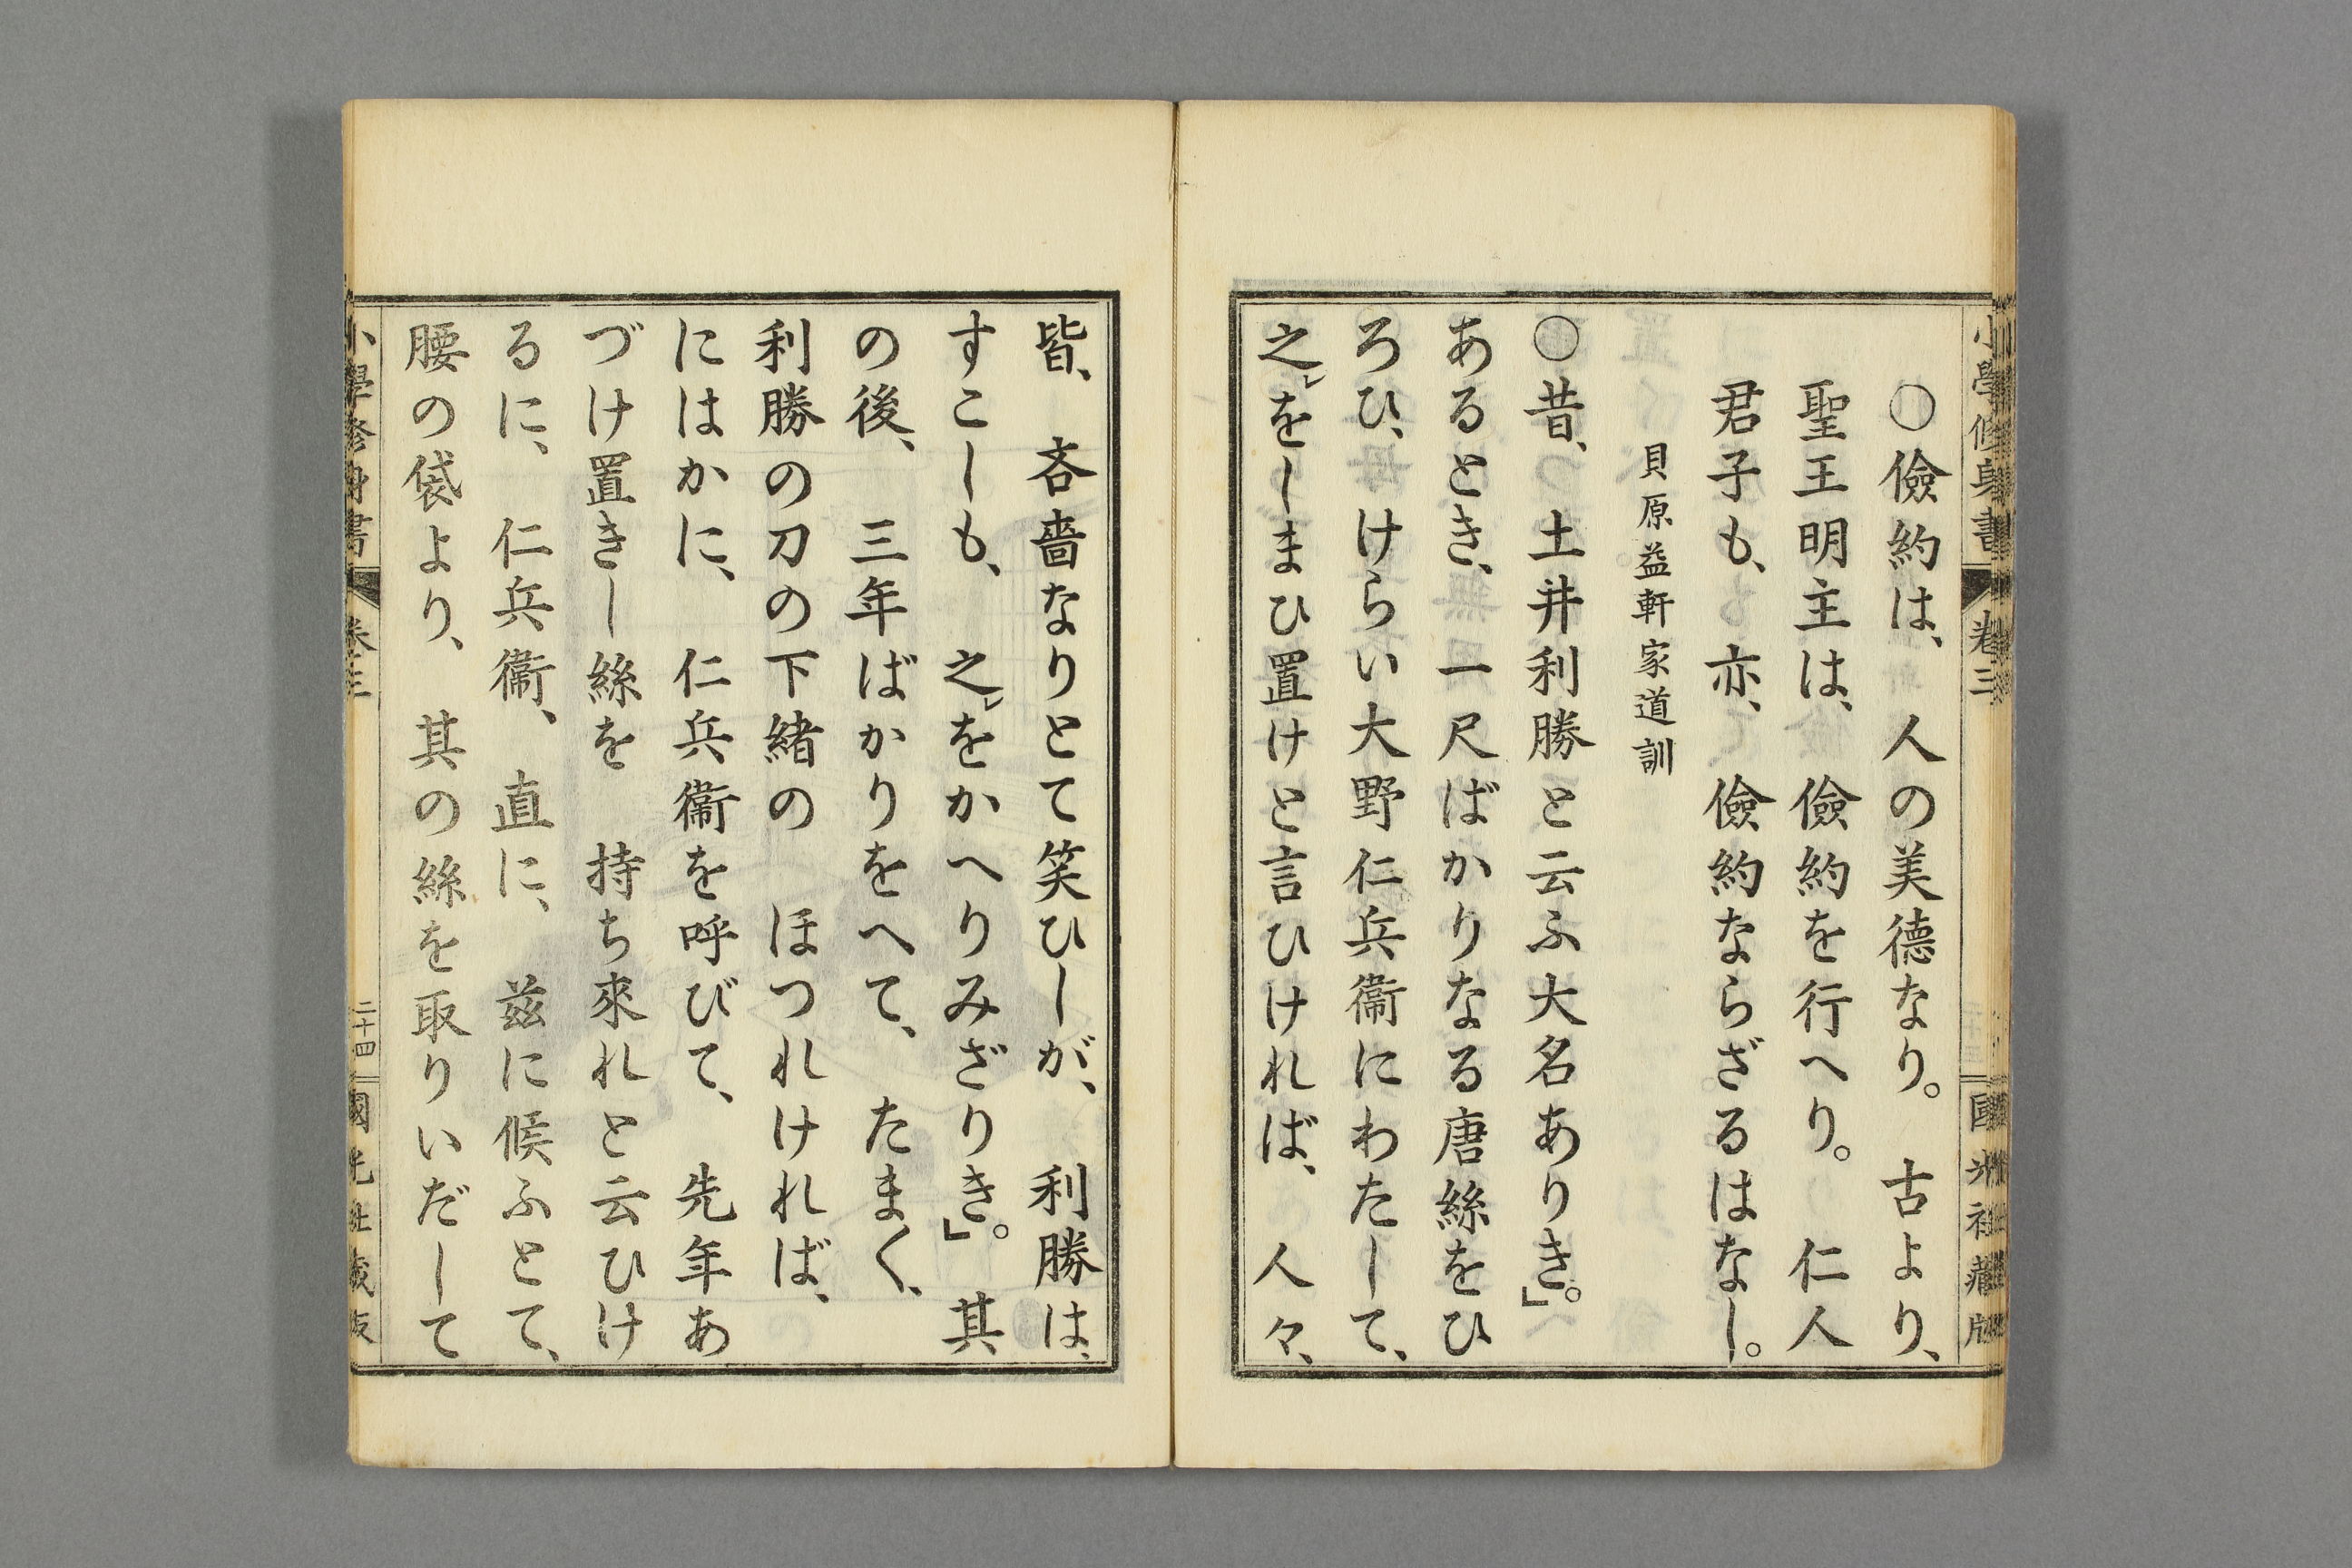 小學修身書 卷三 國光社藏版
○儉約は、人の美德なり。古より、
聖王明主は、儉約を行へり。仁人
君子も、亦、儉約ならざるはなし。
貝原益軒家道訓
○昔、土井利勝と云ふ大名ありき。」
あるとき、一尺ばかりなる唐絲をひ
ろひ、けらい大野仁兵衞にわたして、
之をしまひ置けと言ひければ、人々、
皆、吝嗇なりとて笑ひしが、利勝は、
すこしも、之をかへりみざりき。」其
の後、三年ばかりをへて、たま〱、
利勝の刀の下緒の ほつれければ、
にはかに、仁兵衞を呼びて、先年あ
づけ置きし絲を 持ち來れと云ひけ
るに、仁兵衞、直に、茲に候ふとて、
腰の袋より、其の絲を取りいだして
小學修身書 卷三 二十四 國光社藏版